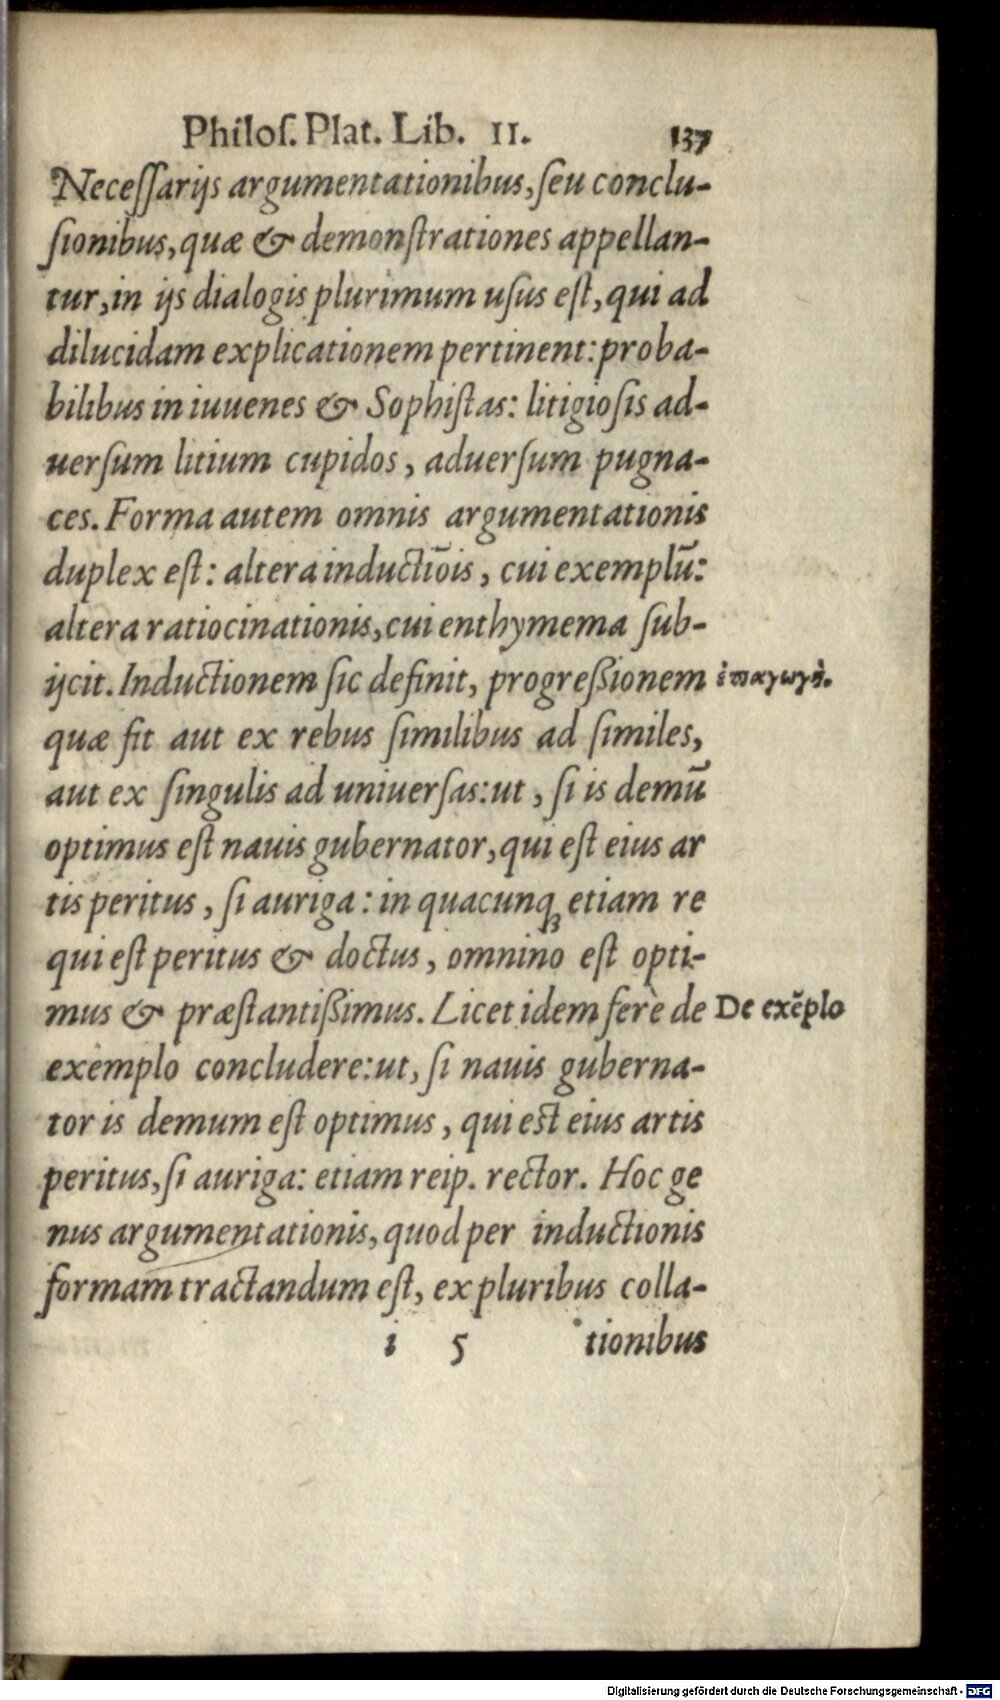 Philoſ. Plat. Lib. II. 137
Neceſſarijs argumentationibus, ſeu conclu-
ſionibus, quæ & demonſtrationes appellan-
tur, in ijs dialogis plurimum uſus eſt, qui ad
dilucidam explicationem pertinent: proba-
bilibus in iuuenes & Sophiſtas: litigioſis ad-
uerſum litium cupidos, aduerſum pugna-
ces. Forma autem omnis argumentationis
duplex eſt: altera inductiōis, cui exemplū:
altera ratiocinationis, cui enthymema ſub-
ijcit. Inductionem ſic definit, progreßionem
ἐπαγωγή.
quæ fit aut ex rebus ſimilibus ad ſimiles,
aut ex ſingulis ad uniuerſas: ut, ſi is demū
optimus eſt nauis gubernator, qui eſt eius ar
tis peritus, ſi auriga: in quacunqꝫ etiam re
qui eſt peritus & doctus, omnino eſt opti-
mus & præſtantißimus. Licet idem ferè de
De exēplo
exemplo concludere: ut, ſi nauis guberna-
tor is demum eſt optimus, qui est eius artis
peritus, ſi auriga: etiam reip. rector. Hoc ge
nus argumentationis, quod per inductionis
formam tractandum eſt, ex pluribus colla-
i 5 tionibus
Digitalisierung gefördert durch die Deutsche Forschungsgemeinschaft - DFG